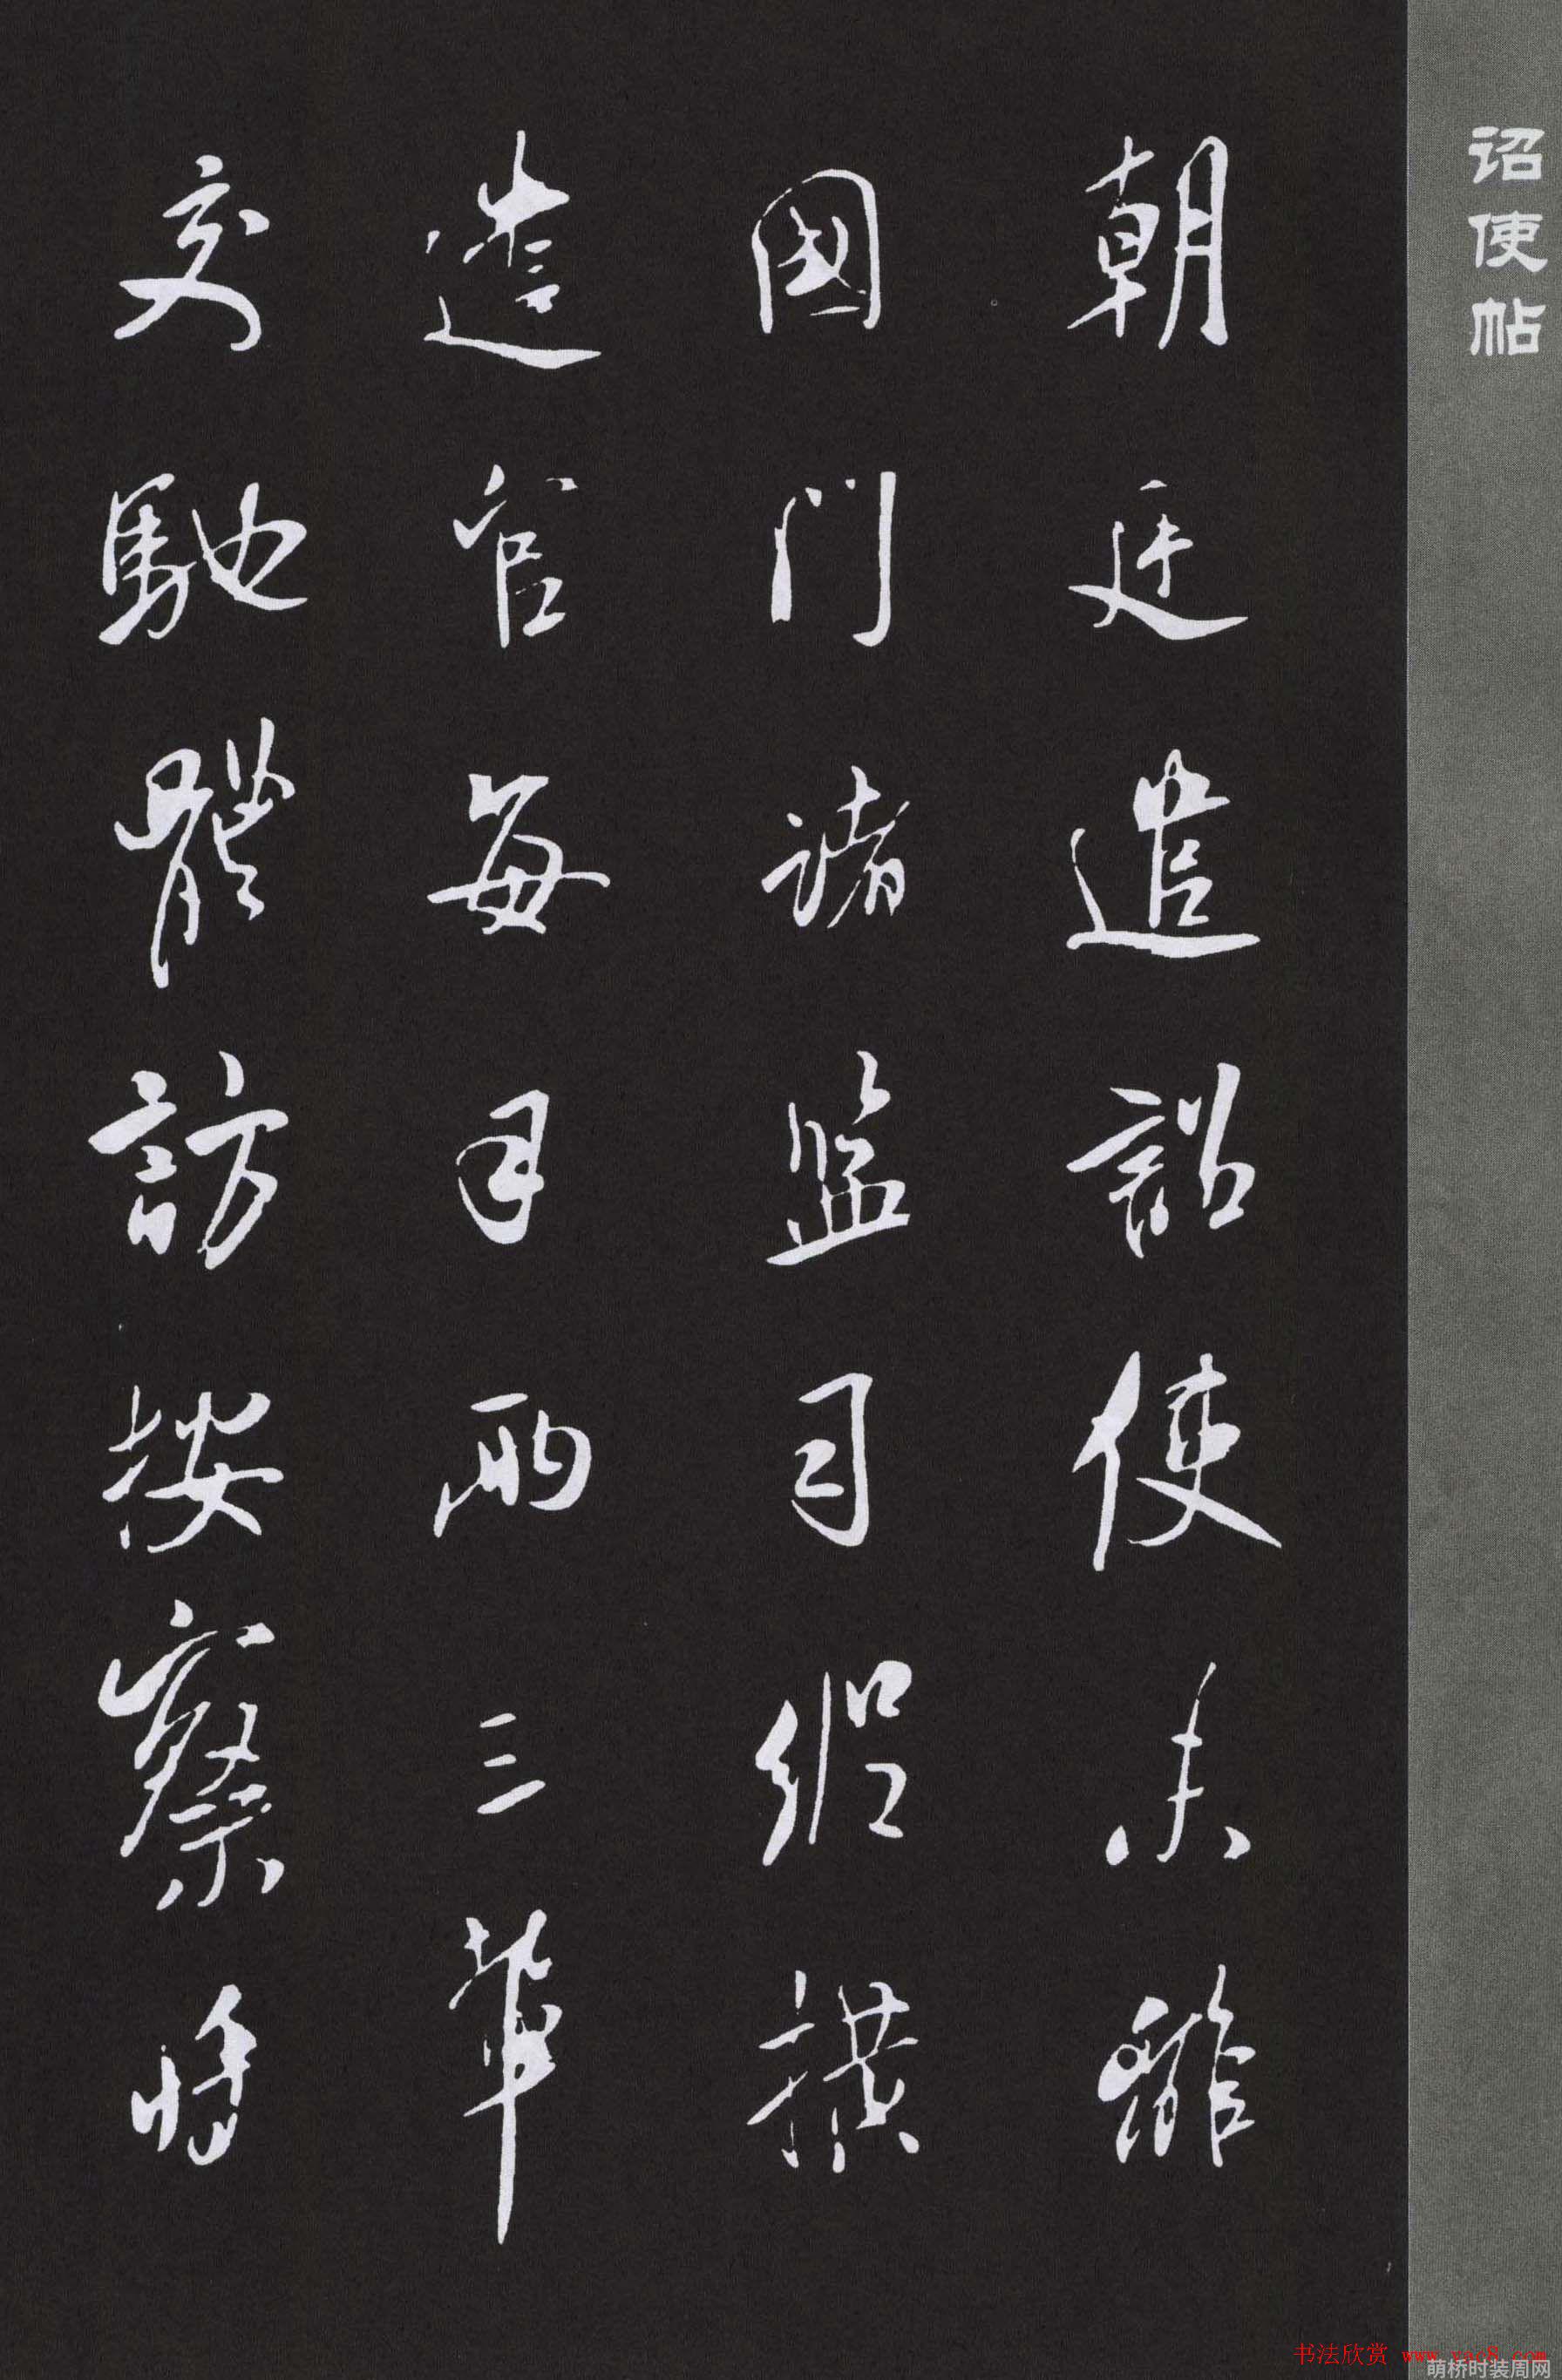 诏使帖
朝廷遣詔使未離
國門諸監司縱橫
遣官每月兩三輩
交馳體訪按察將
书法欣赏 www.yac8.com
萌桥时装周网